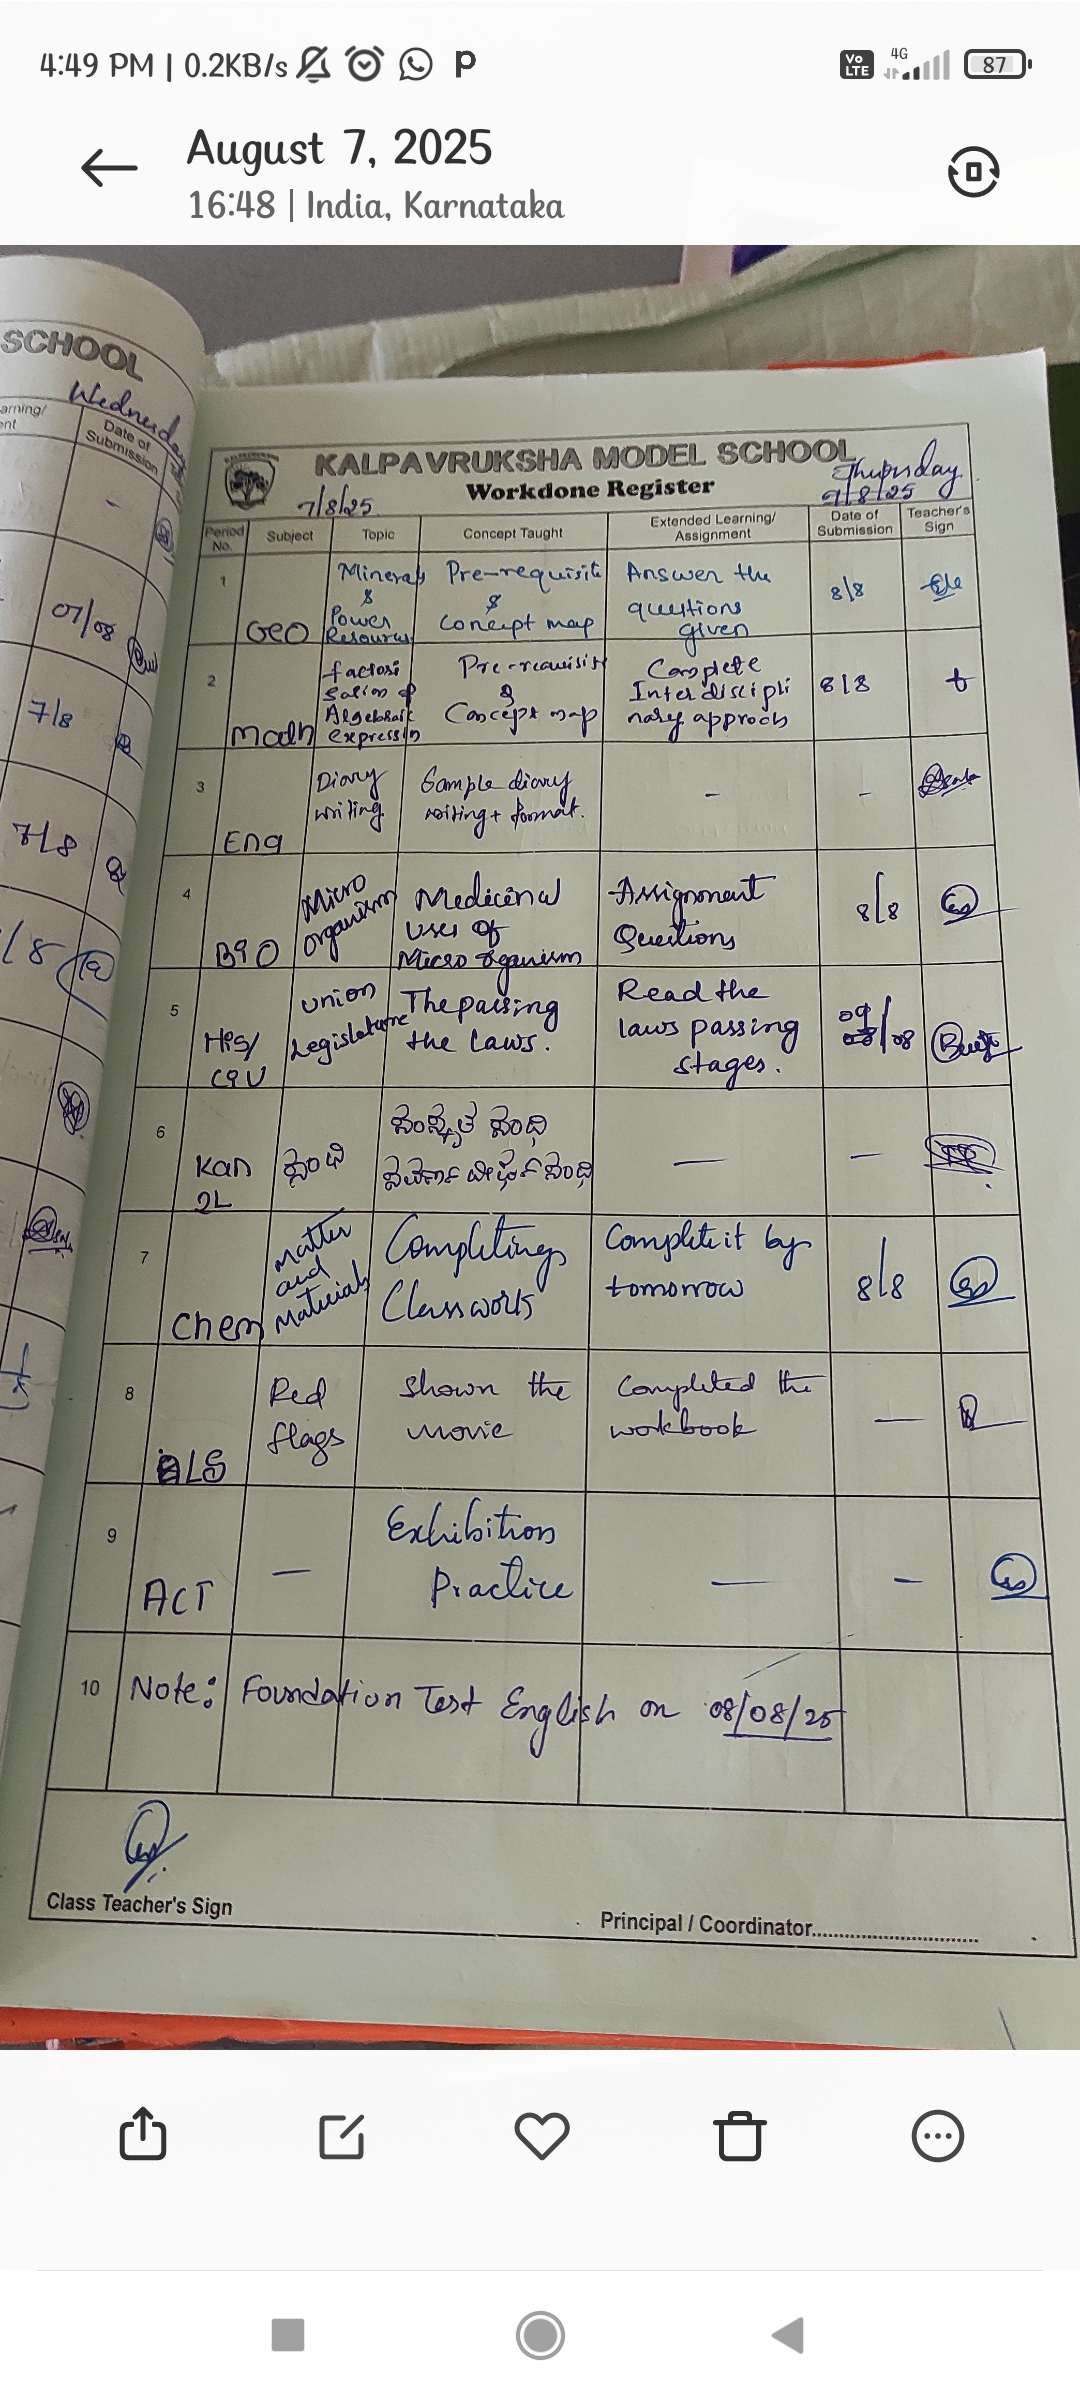 4:49 PM | 0.2KB/s P Vo LTE 4G 87
August 7, 2025
16:48 | India, Karnataka
SCHOOL
Wednesday
arning/
ent
Date of
Submission
-
07/08
7/8
7/8
/8
KALPAVRUKSHA MODEL SCHOOL
Workdone Register
7/8/25
Thursday
7/8/25
Period No. Subject Topic Concept Taught Extended Learning/ Assignment Date of Submission Teacher's Sign
1 GEO Minerals & Power Resources Pre-requisite & Concept map Answer the questions given 8/8
2 Math factori sation of Algebraic expression Pre-requisite & Concept map Complete Interdiscipli nary approch 8/8
3 Eng Diary writing Sample diary writing + format. - -
4 BIO Micro organism Medicinal uses of Micro organism Assignment Questions 8/8
5 His/ CIV Union Legislature The passing the laws. Read the laws passing stages. 09/08
6 Kan 2L ಸಂಧಿ ಸಂಸ್ಕೃತ ಸಂಧಿ ಸವರ್ಣ ದೀರ್ಘ ಸಂಧಿ — —
7 Chem Matter and Materials Completings Classworks Complete it by tomorrow 8/8
8 LS Red flags shown the movie Completed the workbook —
9 ACT — Exhibition Practice — -
10 Note: Foundation Test English on 08/08/25
Class Teacher's Sign
Principal / Coordinator..............................